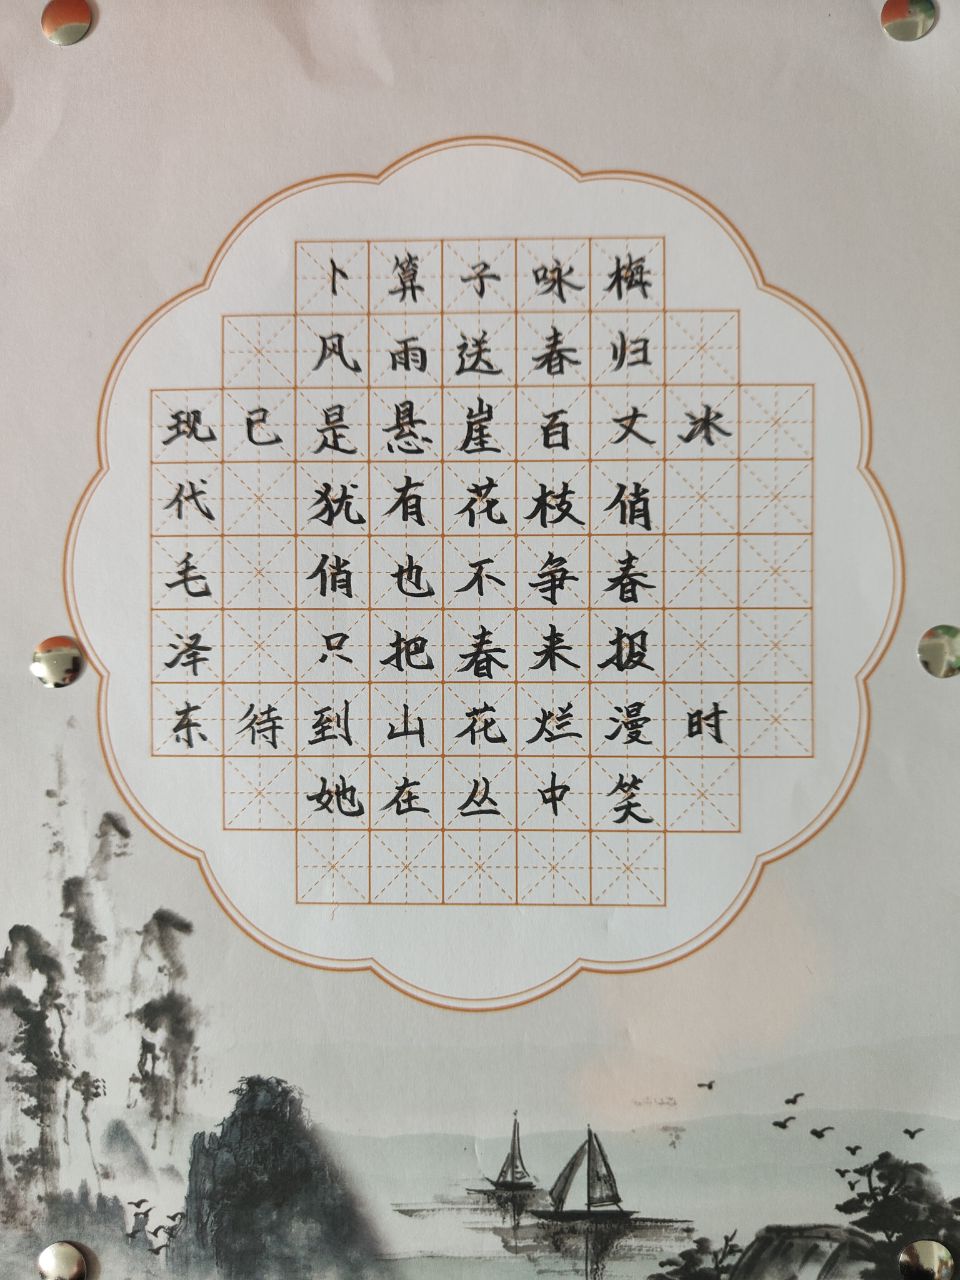 卜算子咏梅
现代毛泽东
风雨送春归
已是悬崖百丈冰
犹有花枝俏
俏也不争春
只把春来报
待到山花烂漫时
她在丛中笑